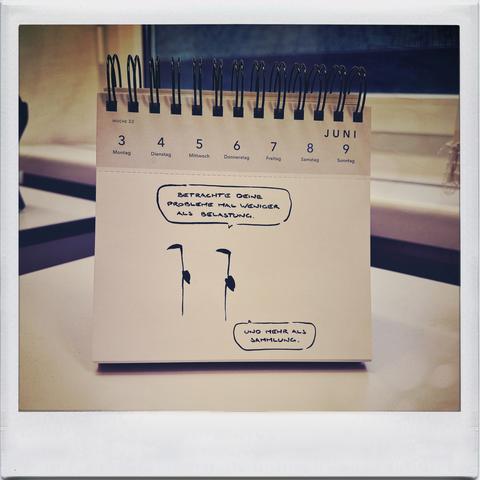 JUNI
WOCHE 23
3 4 5 6 7 8 9
Montag Dienstag Mittwoch Donnerstag Freitag Samstag Sonntag
BETRACHTE DEINE
PROBLEME MAL WENIGER
ALS BELASTUNG.
UND MEHR ALS
SAMMLUNG.